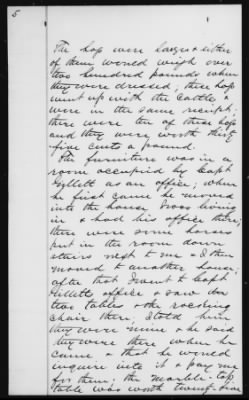 5
The hogs were large & either
of them would weigh over
two hundred pounds when
they were dressed; these hogs
went up with the cattle &
were in the same receipt;
there were ten of these hogs
and they were worth thirty
five cents a pound.
The furniture was in a
room occupied by Capt
Gillett as an office; when
he first came he moved
into the house I was living
in & had his office there;
there were some horses
put in the room down
stairs next to me & I then
moved to another house;
after that I went to Capt
Gilletts office & saw the
two tables & the rocking
chair there; I told him
they were mine & he said
they were there when he
came & that he would
inquire into it & pay me
for them; the marble-top
table was worth twenty-five